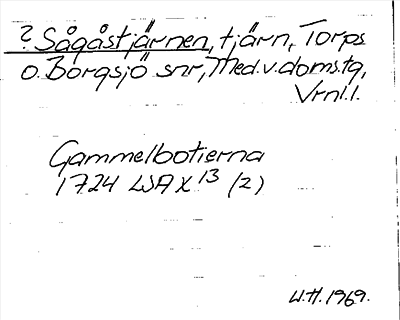 ? Sågåstjärnen, tjärn, Torps
o. Borgsjö snr, Med. v. doms.tg,
Vrnl.l.
Gammelbotierna
1724 LSA X 13 (2)
W.H. 1969.